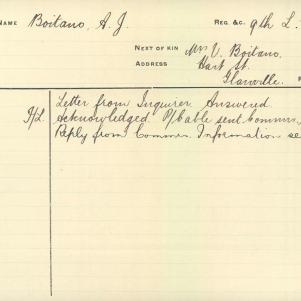 NAME Boitano, A. J. REG. &C. 9th L.
NEXT OF KIN Mrs V. Boitano,
ADDRESS Hart St.
Glanville.
Letter from Inquirer. Answered.
I/L. Acknowledged. P/Cable sent Commrs.
Reply from Commrs. Information se